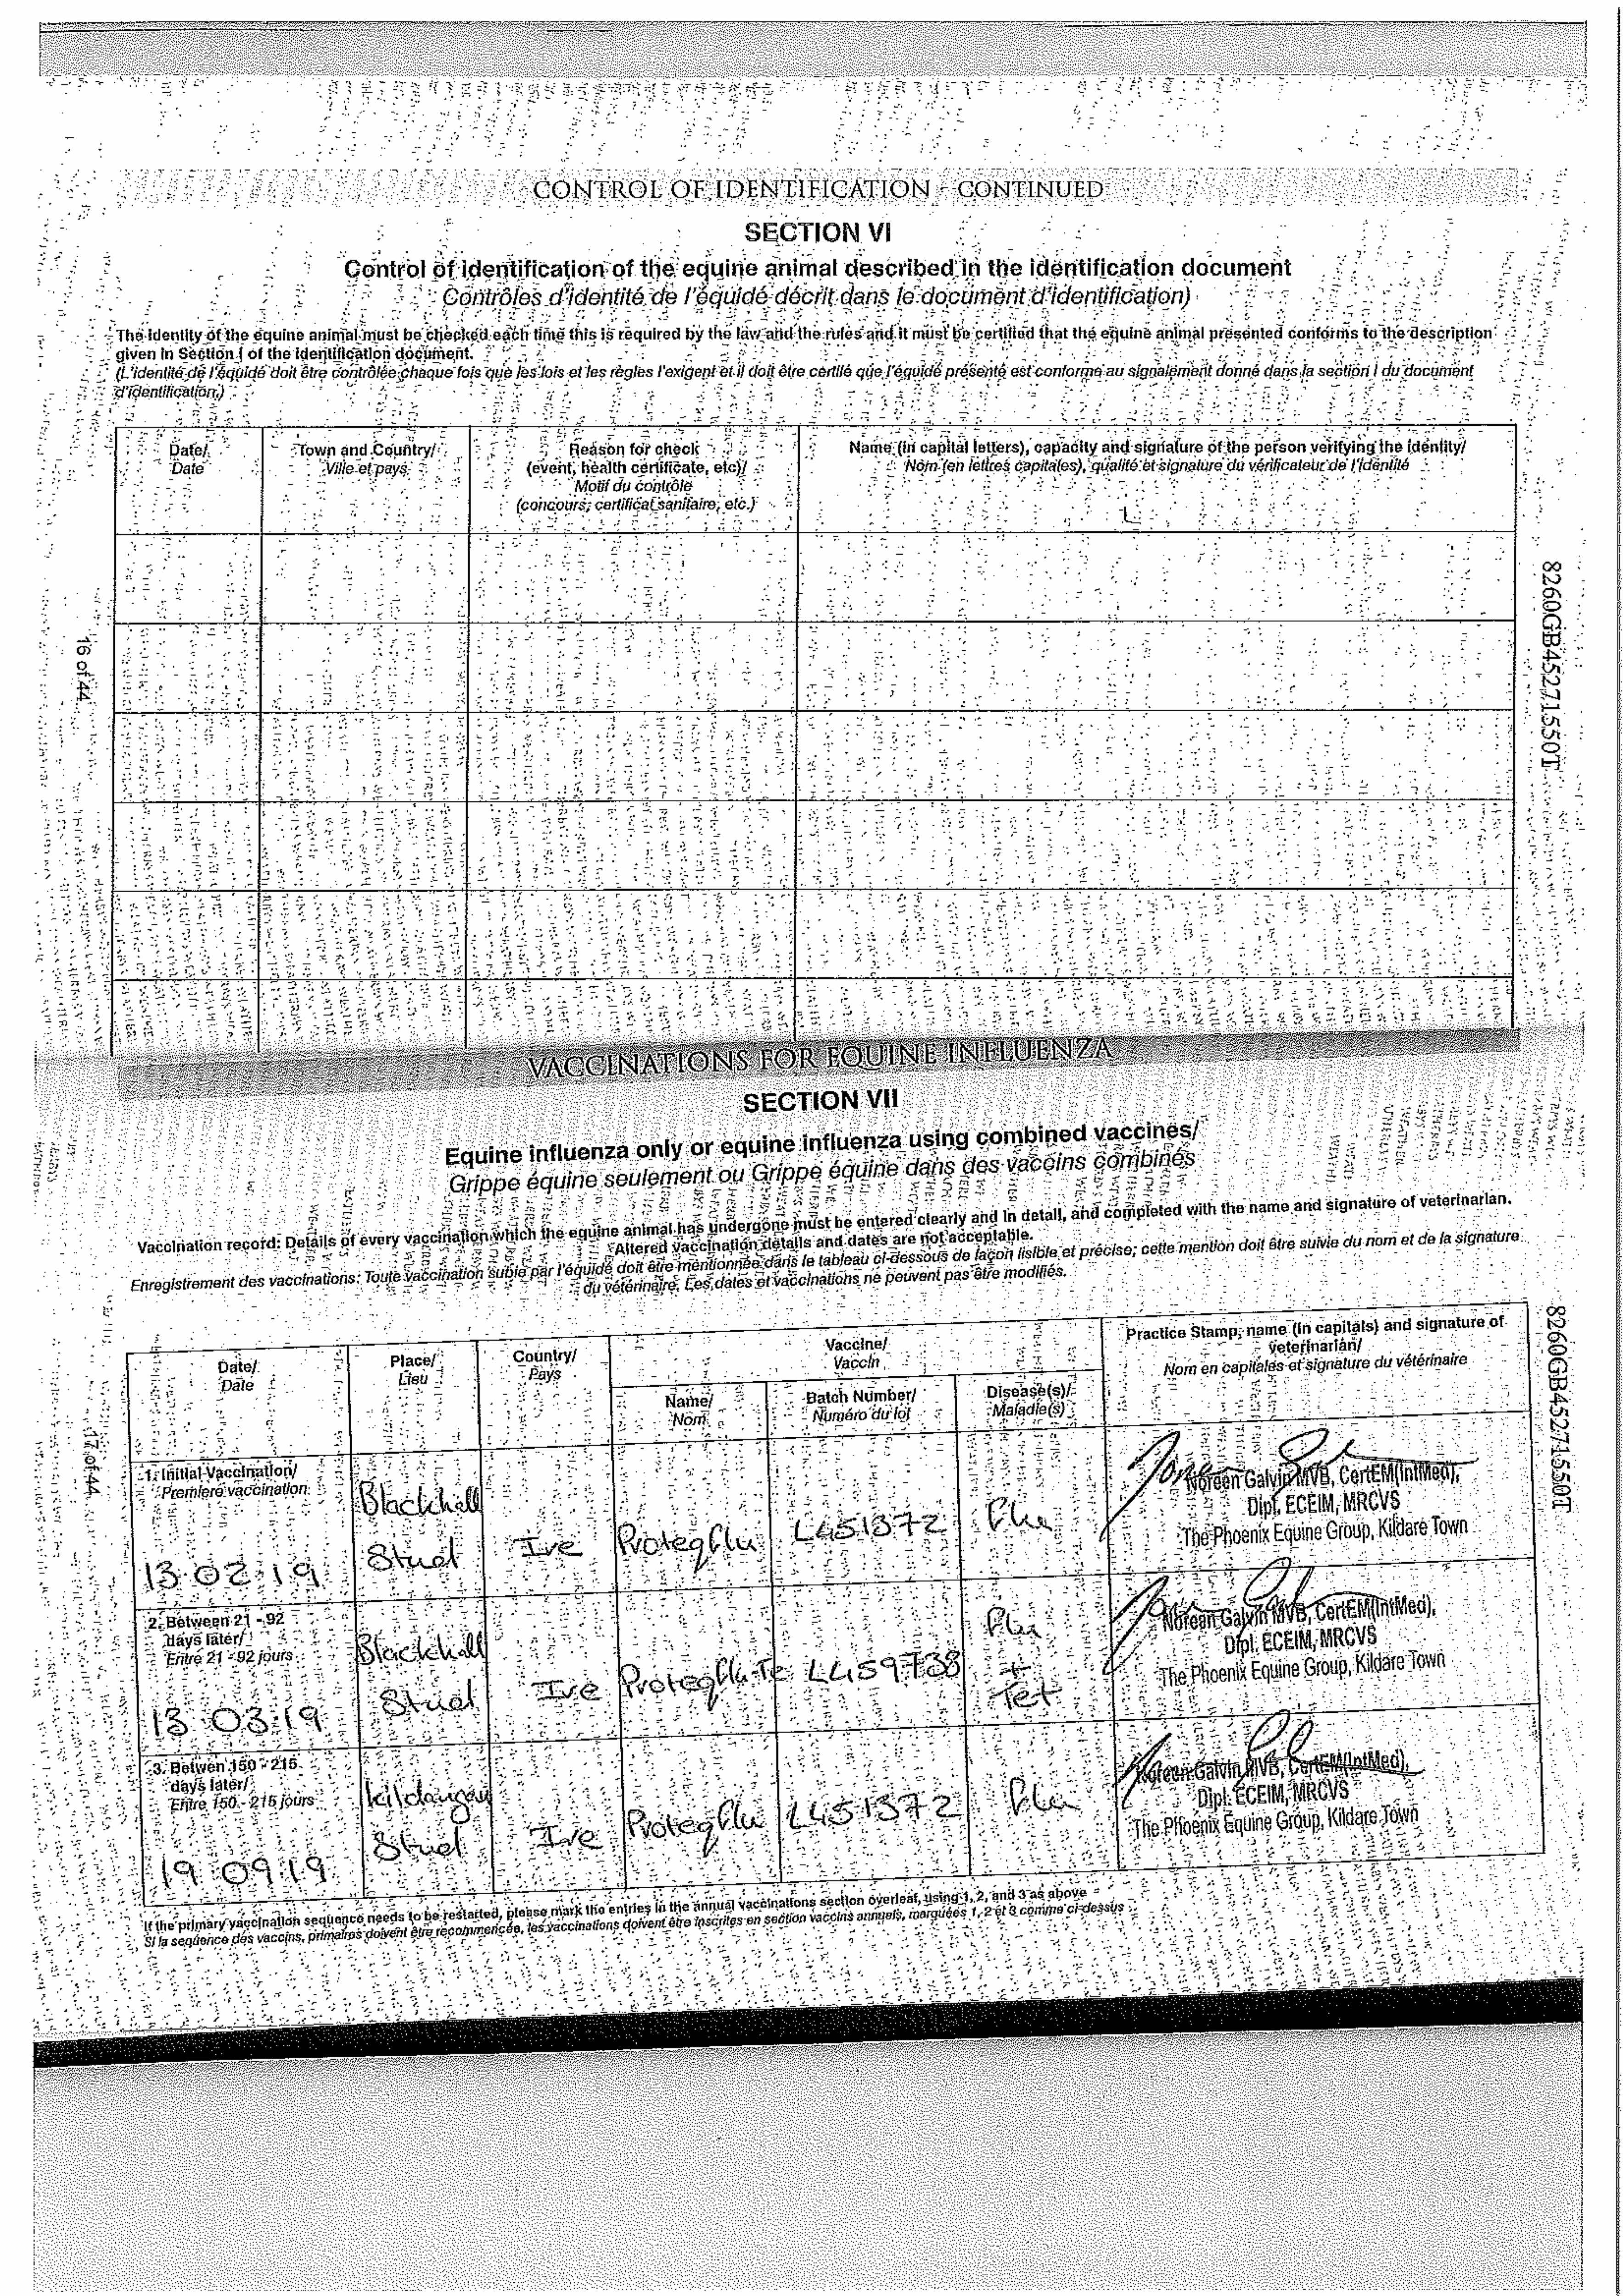 CONTROL OF IDENTIFICATION - CONTINUED
SECTION VI
Control of identification of the equine animal described in the identification document
Contrôles d'identité de l'équidé décrit dans le document d'identification)
The identity of the equine animal must be checked each time this is required by the law and the rules and it must be certified that the equine animal presented conforms to the description
given in Section I of the identification document.
(L'identité de l'équidé doit être contrôlée chaque fois que les lois et les règles l'exigent et il doit être certifié que l'équidé présenté est conforme au signalement donné dans la section I du document
d'identification.)
Date/
Date
Town and Country/
Ville et pays
Reason for check
(event, health certificate, etc)/
Motif du contrôle
(concours, certificat sanitaire, etc.)
Name (in capital letters), capacity and signature of the person verifying the identity/
Nom (en lettres capitales), qualité et signature du vérificateur de l'identité
16 of 44
8260GB45271550T
VACCINATIONS FOR EQUINE INFLUENZA
SECTION VII
Equine influenza only or equine influenza using combined vaccines/
Grippe équine seulement ou Grippe équine dans des vaccins combinés
Vaccination record: Details of every vaccination which the equine animal has undergone must be entered clearly and in detail, and completed with the name and signature of veterinarian.
Altered vaccination details and dates are not acceptable.
Enregistrement des vaccinations: Toute vaccination subie par l'équidé doit être mentionnée dans le tableau ci-dessous de façon lisible et précise; cette mention doit être suivie du nom et de la signature
du vétérinaire. Les dates et vaccinations ne peuvent pas être modifiés.
Date/
Date
Place/
Lieu
Country/
Pays
Vaccine/
Vaccin
Name/
Nom
Batch Number/
Numéro du lot
Disease(s)/
Maladie(s)
Practice Stamp, name (in capitals) and signature of
veterinarian/
Nom en capitales et signature du vétérinaire
17 of 44
8260GB45271550T
1. Initial Vaccination/
Premiere vaccination
13.02.19
Blackhall
Stud
Ire
Proteqflu
L451372
Flu
Noreen Galvin MVB, CertEM(IntMed),
Dipl. ECEIM, MRCVS
The Phoenix Equine Group, Kildare Town
2. Between 21 - 92
days later/
Entre 21 - 92 jours
13.03.19
Blackhall
Stud
Ire
Proteqflu-Te
L459738
Flu
+
Tet
Noreen Galvin MVB, CertEM(IntMed),
Dipl. ECEIM, MRCVS
The Phoenix Equine Group, Kildare Town
3. Betwen 150 - 215
days later/
Entre 150 - 215 jours
19.09.19
Kildangan
Stud
Ire
Proteqflu
L451372
Flu
Noreen Galvin MVB, CertEM(IntMed),
Dipl. ECEIM, MRCVS
The Phoenix Equine Group, Kildare Town
If the primary vaccination sequence needs to be restarted, please mark the entries in the annual vaccinations section overleaf, using 1, 2, and 3 as above
Si la sequence des vaccins, primaires doivent être recommencée, les vaccinations doivent être inscrites en section vaccins annuels, marquées 1, 2 et 3 comme ci-dessus